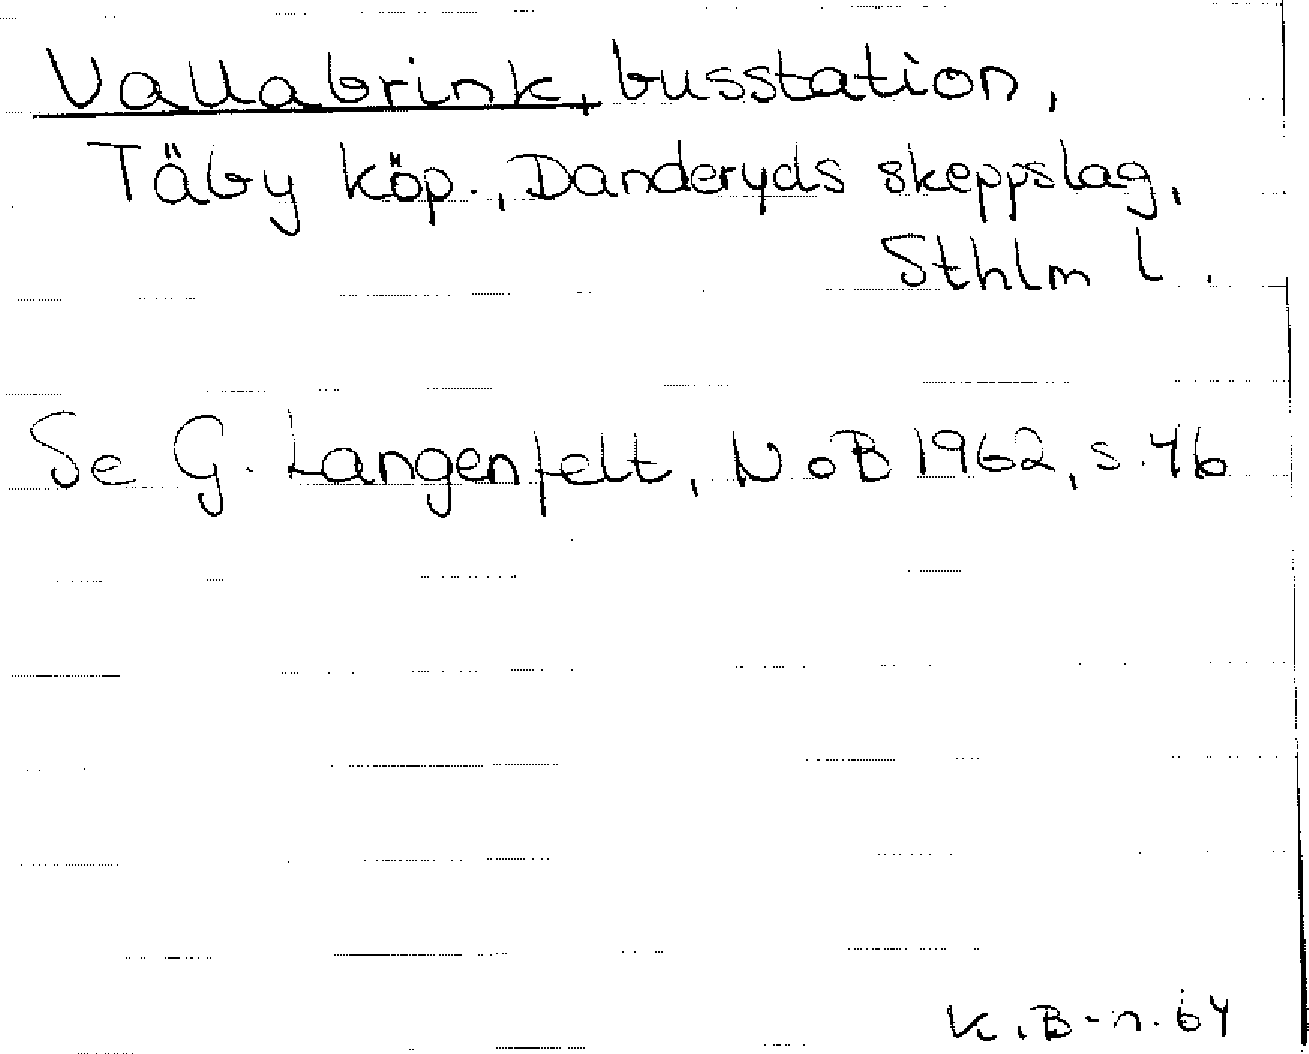 Vallabrink, busstation,
Täby köp., Danderyds skeppslag,
Sthlm l.
Se G. Langenfelt, NoB 1962, s. 46
K. B-n. 64